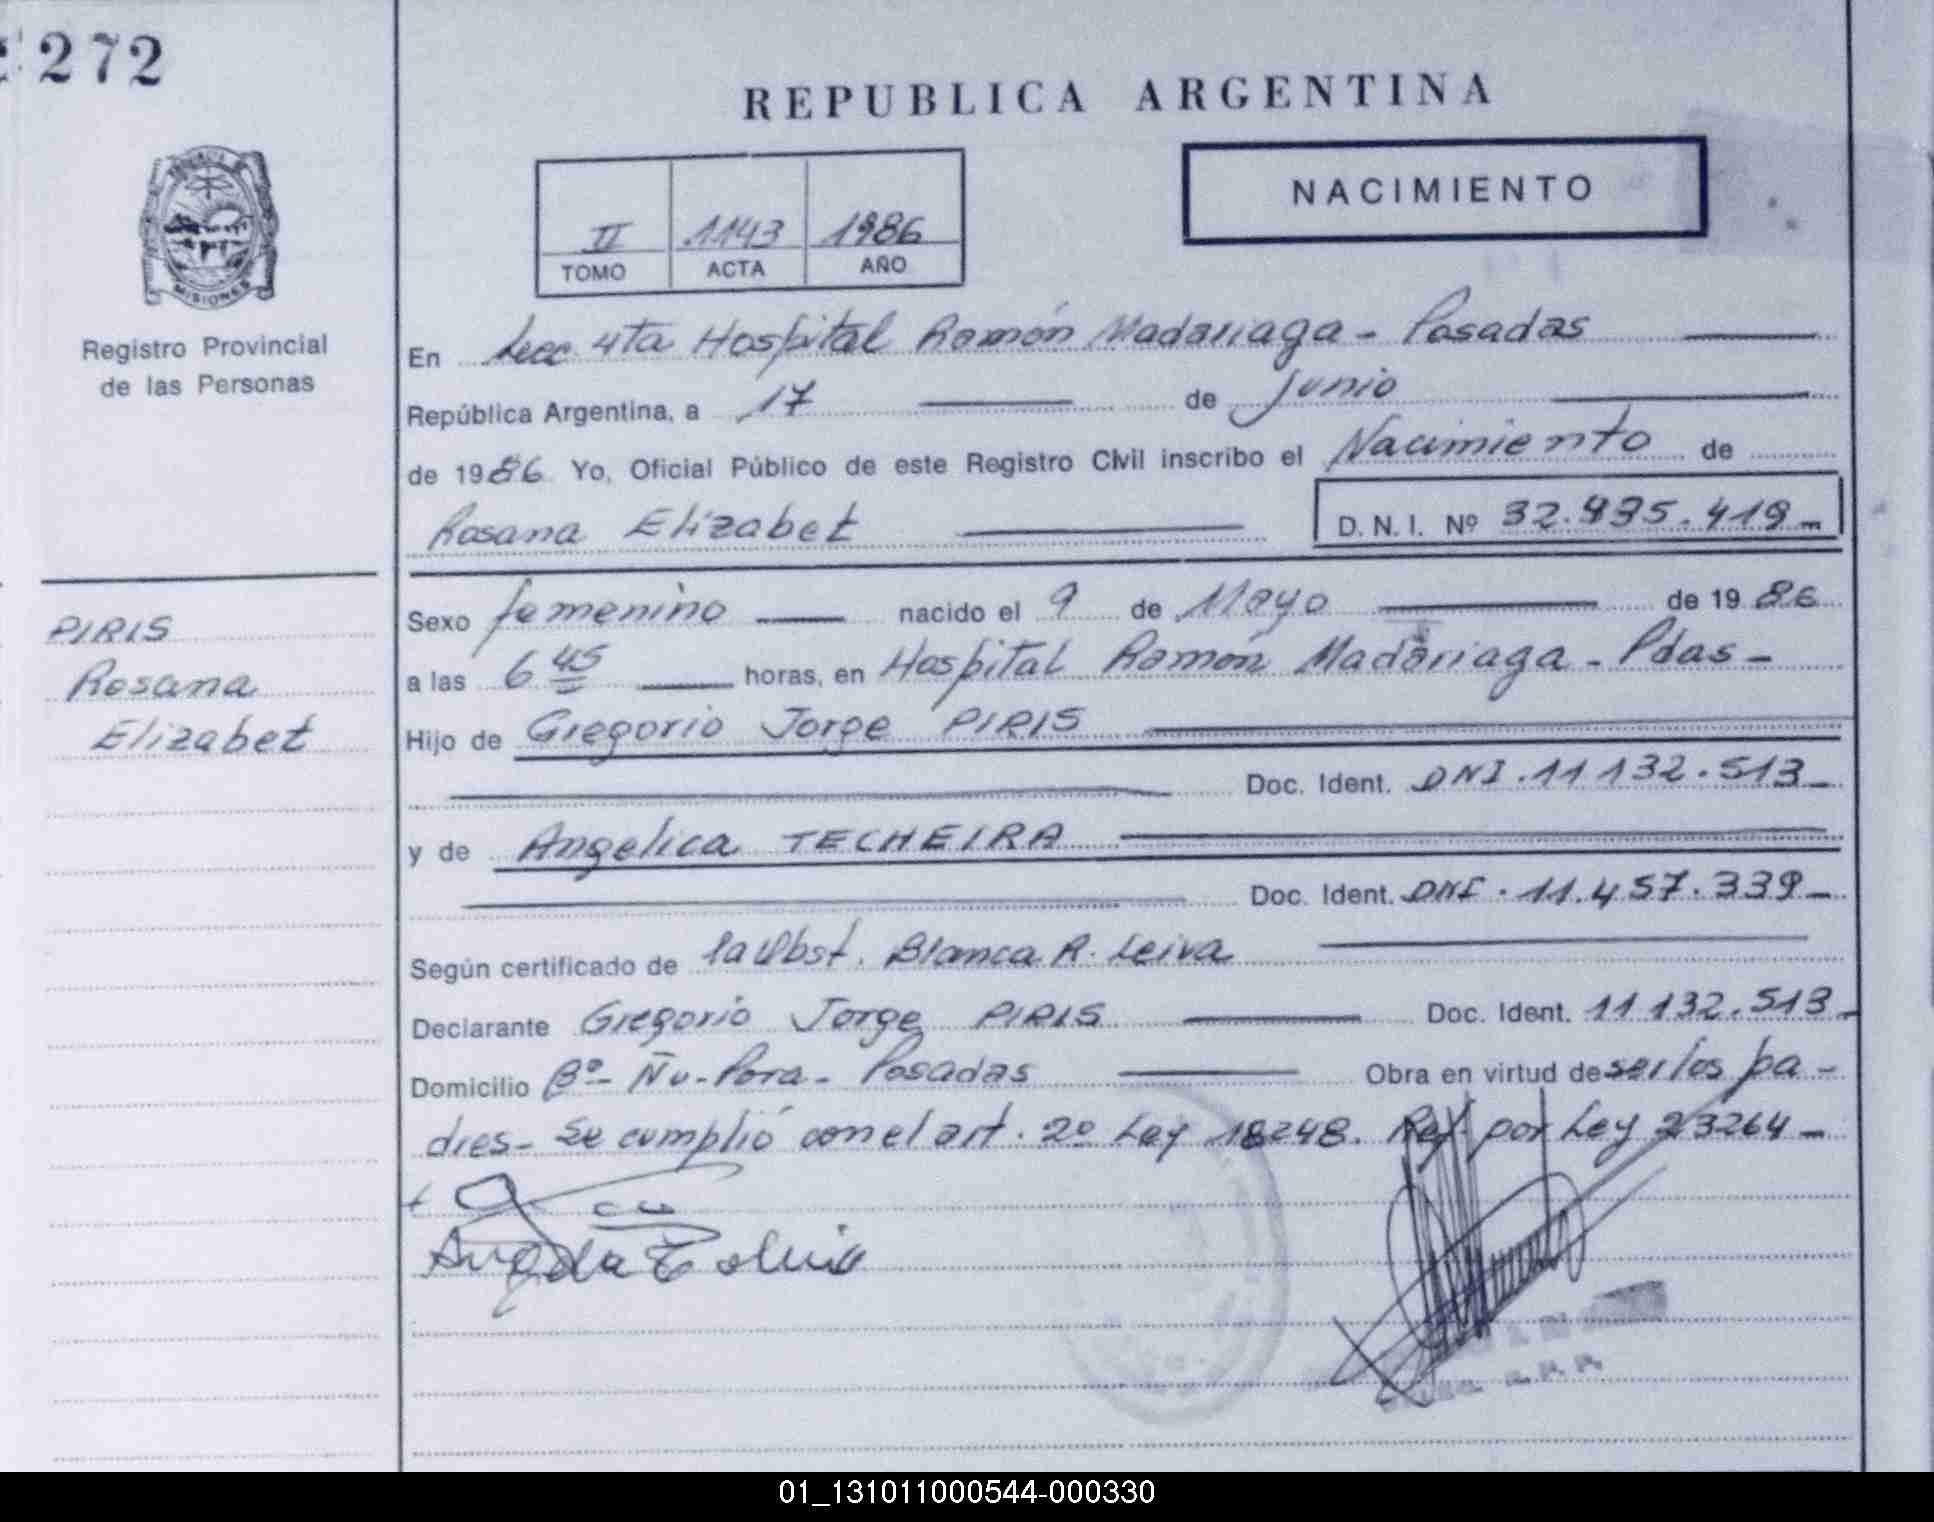 272
REPUBLICA ARGENTINA
NACIMIENTO
II 1143 1986
TOMO ACTA AÑO
MISIONES
Registro Provincial
de las Personas
En Secc 4ta Hospital Ramón Madariaga - Posadas
República Argentina, a 17 de Junio
de 1986 Yo, Oficial Público de este Registro Civil inscribo el Nacimiento de
Rosana Elizabet D.N.I. Nº 32.935.419-
PIRIS
Rosana
Elizabet
Sexo femenino nacido el 9 de Mayo de 1986
a las 6 45 horas, en Hospital Ramón Madariaga - Pdas -
Hijo de Gregorio Jorge PIRIS
Doc. Ident. DNI. 11 132.513-
y de Angelica TECHEIRA
Doc. Ident. DNI. 11.457.339-
Según certificado de la Obst. Blanca R. Leiva
Declarante Gregorio Jorge PIRIS Doc. Ident. 11 132.513-
Domicilio Bº- Ñu-Pora- Posadas Obra en virtud de ser los pa-
dres- Se cumplió con el art. 2º Ley 18248. Ref. por Ley 23264-
01_131011000544-000330